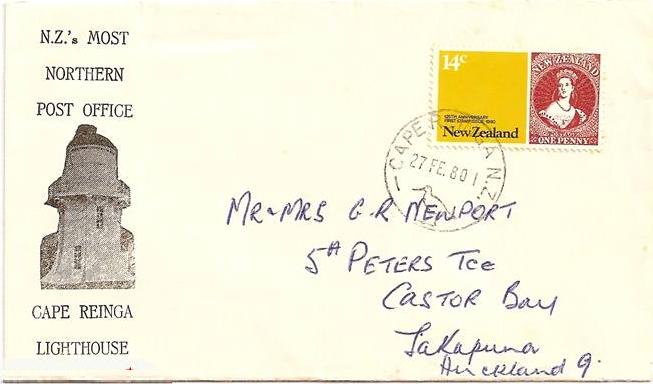 N.Z.'s MOST
NORTHERN
POST OFFICE
CAPE REINGA
LIGHTHOUSE
14c
125TH ANNIVERSARY
FIRST STAMP ISSUE 1980
New Zealand
NEW ZEALAND
POSTAGE
ONE PENNY
CAPE REINGA N.Z.
27 FE. 80 1
MR & MRS G.R NEWPORT
5A PETERS Tce
CASTOR BAY
Takapuna
Auckland 9.